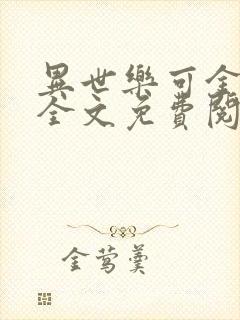 異世樂可全
全文免費閱
金莺羹